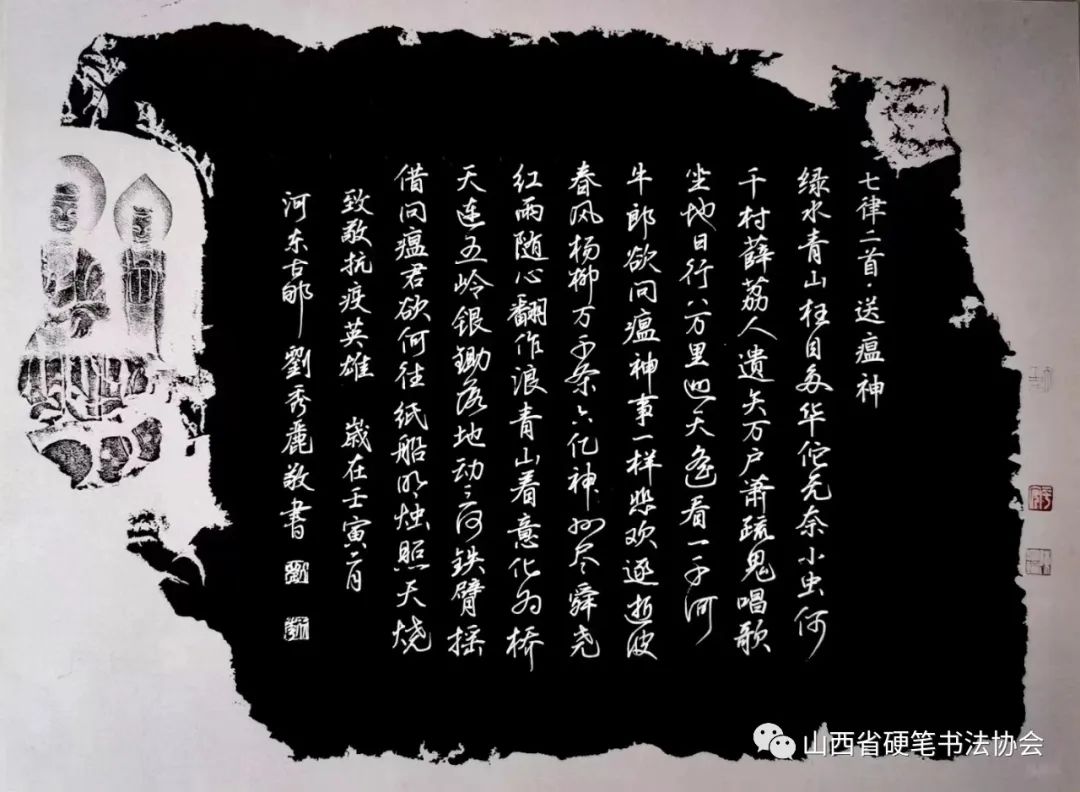 七律二首·送瘟神
绿水青山枉自多华佗无奈小虫何
千村薜荔人遗矢万户萧疏鬼唱歌
坐地日行八万里巡天遥看一千河
牛郎欲问瘟神事一样悲欢逐逝波
春风杨柳万千条六亿神州尽舜尧
红雨随心翻作浪青山着意化为桥
天连五岭银锄落地动三河铁臂摇
借问瘟君欲何往纸船明烛照天烧
致敬抗疫英雄 嵗在壬寅二月
河东古郇 劉秀麗敬書
山西省硬笔书法协会